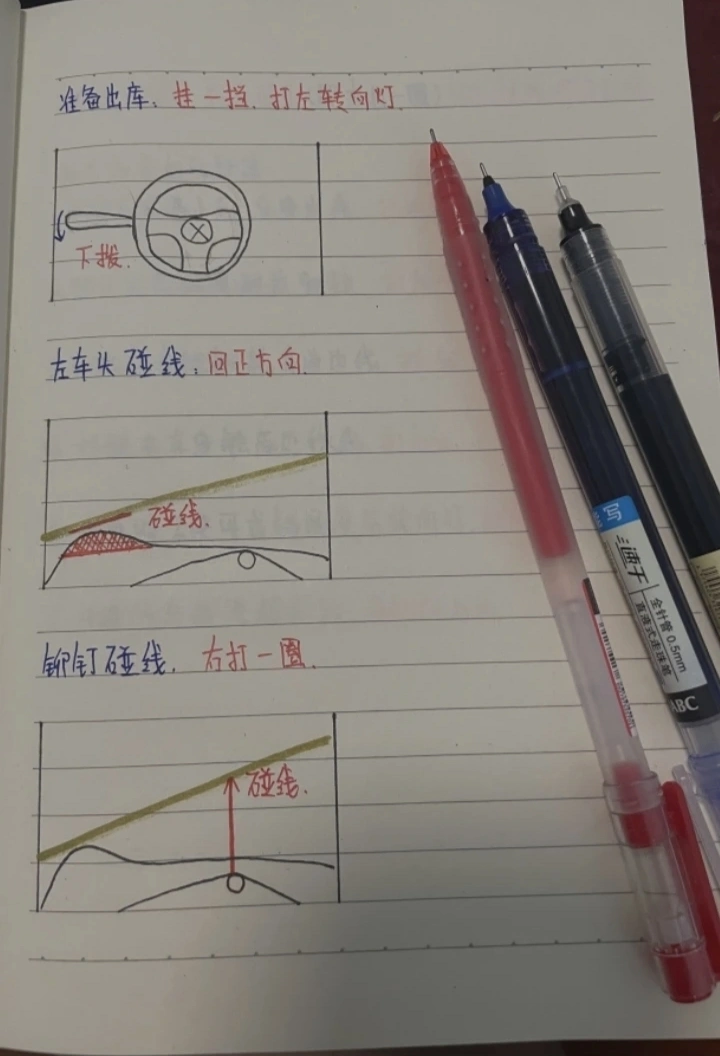 准备出库：挂一挡. 打左转向灯.
下拨.
左车头碰线：回正方向.
碰线.
铆钉碰线. 右打一圈.
碰线.
写
速干
全针管 0.5mm
直液式走珠笔
ABC